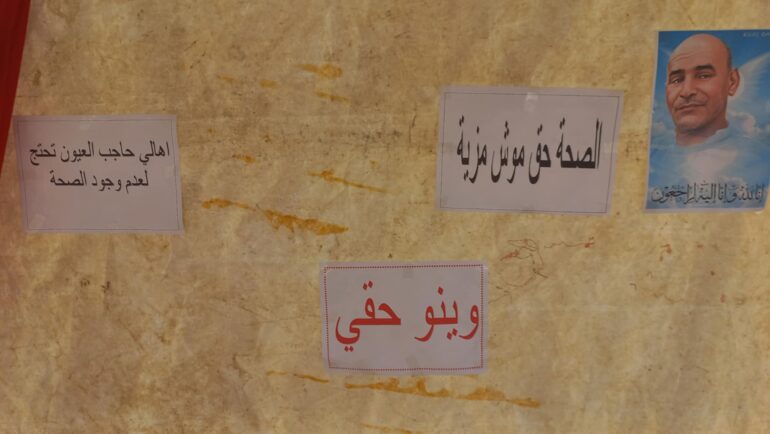 اهالي حاجب العيون تحتج
لعدم وجود الصحة
الصحة حق موش مزية
إنا لله وإنا إليه راجعون
وينو حقي